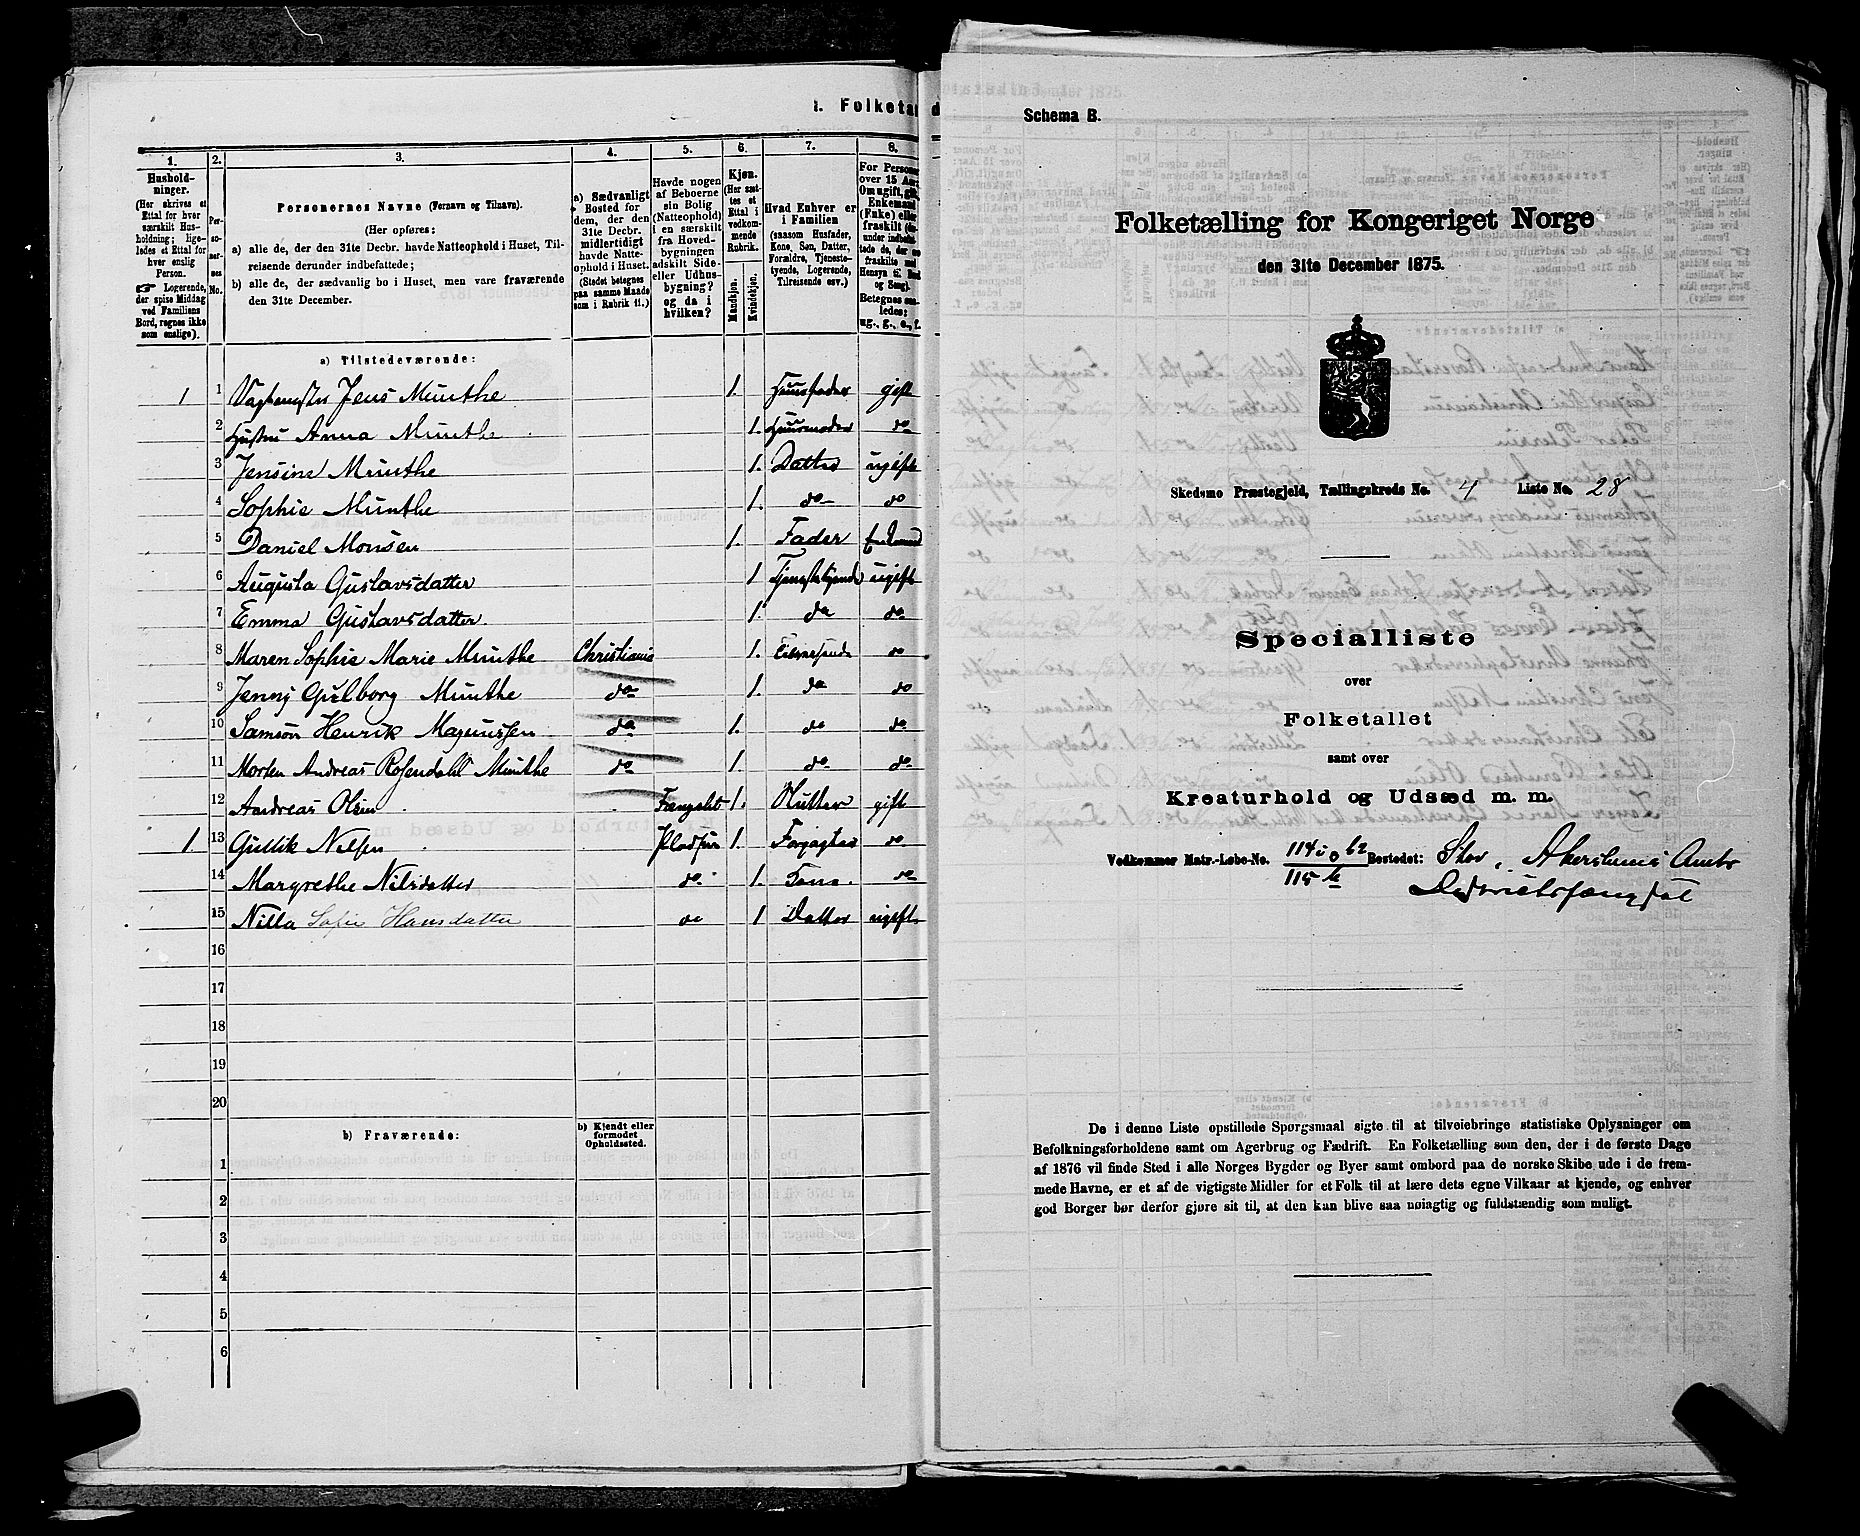 1. Folketa
1.
Hushold-
ninger.
(Her skrives et
Ettal for hver
særskilt Hus-
holdning; lige-
ledes et Ettal for
hver enslig
Person.
Logerende,
der spise Middag
ved Familiens
Bord, regnes ikke
som enslige).
2.
Per-
so-
ner-
nes
No.
3.
Personernes Navne (Fornavn og Tilnavn).
(Her opføres:
a) alle de, der den 31te Decbr. havde Natteophold i Huset, Til-
reisende derunder indbefattede;
b) alle de, der sædvanlig bo i Huset, men vare fraværende
den 31te December.
4.
a) Sædvanligt
Bosted for
dem, der den
31te Decbr.
midlertidigt
havde Natte-
ophold i Huset.
(Stedet betegnes
paa samme Maade
som i Rubrik 11.)
5.
Havde nogen
af Beboerne
sin Bolig
(Natteophold)
i en særskilt
fra Hoved-
bygningen
adskilt Side-
eller Udhus-
bygning?
og da i
hvilken?
6.
Kjøn.
(Her sæt-
tes et
Ettal i
vedkom-
mende
Rubrik.
Mandkjøn.
Kvindekjøn.
7.
Hvad Enhver er
i Familien
(saasom Husfader,
Kone, Søn, Datter,
Forældre, Tjeneste-
tyende, Logerende,
Tilreisende osv.)
8.
For Persone
over 15 Aar
Om ugift, gift
Enkemand
(Enke) eller
fraskilt
Betegnes saa-
ledes:
ug., g., e., f.
a) Tilstedeværende:
1 1 Vagtmester Jens Munthe 1. Huusfader gift
2 Hustru Anna Munthe 1. Huusmoder do
3 Jensine Munthe 1. Datter ugift
4 Sophie Munthe 1. do do
5 Daniel Monsen 1. Fader Enkemand
6 Augusta Gustavsdatter 1 Tjenestetyende ugift
7 Emma Gustavsdatter 1. do do
8 Maren Sophie Marie Munthe Christiania 1. do
9 Jenny Gulborg Munthe do 1. do do
10 Samson Henrik Magnussen do 1. do do
11 Morten Andreas Rosendahl Munthe do 1. do do
12 Andreas Olsen Fængslet 1. gift
1 13 Gullik Nilsen 1. Forpagter do
14 Margrethe Nilsdatter do 1. Kone do
15 Nilla Sofie Hansdatter do 1 Datter ugift
16
17
18
19
20
b) Fraværende:
b) Kjendt eller
formodet
Opholdssted.
1
2
3
4
5
6
Schema B.
Folketælling for Kongeriget Norge
den 31te December 1875.
Skedsmo Præstegjeld, Tællingskreds No. 4 Liste No. 28
Specialliste
over
Folketallet
samt over
Kreaturhold og Udsæd m. m.
Vedkommer Matr.-Løbe-No. 114 i o 62 Bostedet: Skov, Akershuus Amts
115 Distriktsfængsel
De i denne Liste opstillede Spørgsmaal sigte til at tilveiebringe statistiske Oplysninger om
Befolkningsforholdene samt om Agerbrug og Fædrift. En Folketælling som den, der i de første Dage
af 1876 vil finde Sted i alle Norges Bygder og Byer samt ombord paa de norske Skibe ude i de frem-
mede Havne, er et af de vigtigste Midler for et Folk til at lære dets egne Vilkaar at kjende, og enhver
god Borger bør derfor gjøre sit til, at den kan blive saa nøiagtig og fuldstændig som muligt.